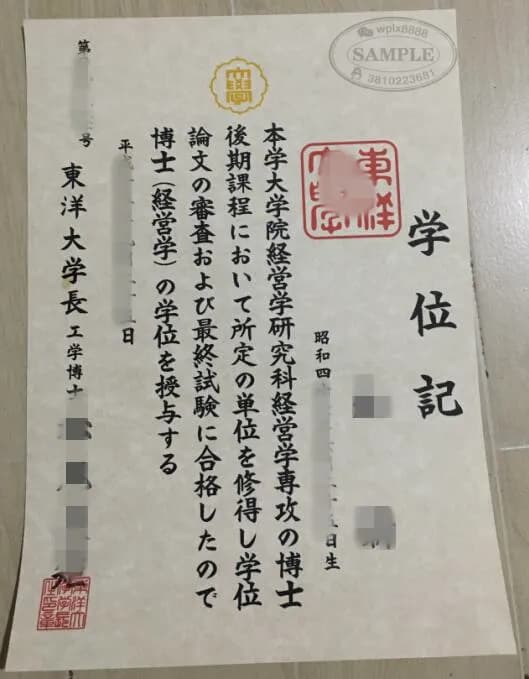 学位記
昭和四 日生
本学大学院経営学研究科経営学専攻の博士
後期課程において所定の単位を修得し学位
論文の審査および最終試験に合格したので
博士(経営学)の学位を授与する
平 日
東洋大学長 工学博士
第 号
東洋
大学
wplx8888
SAMPLE
3810223681